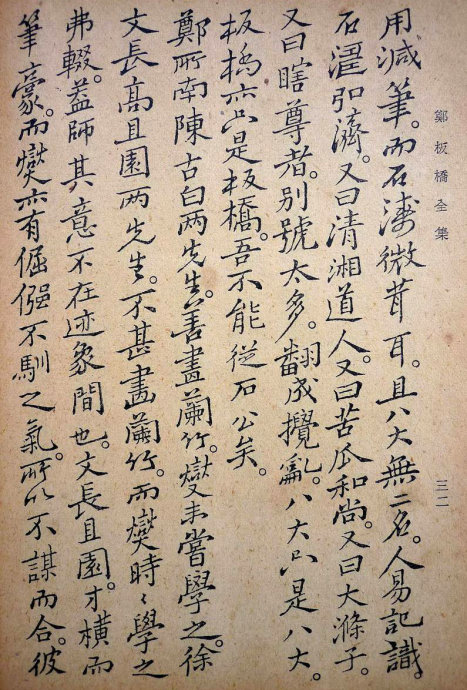 鄭板橋全集
三二
用減筆。而石濤微茸耳。且八大無二名。人易記識。
石濤弘濟。又曰清湘道人。又曰苦瓜和尚。又曰大滌子。
又曰瞎尊者。別號太多。翻成攪亂。八大只是八大。
板橋亦只是板橋。吾不能從石公矣。
鄭所南陳古白兩先生。善畫蘭竹。燮未嘗學之。徐
文長高且園兩先生。不甚畫蘭竹。而燮時〻學之
弗輟。蓋師其意不在迹象間也。文長且園。才橫而
筆豪。而燮亦有倔強不馴之氣。所以不謀而合。彼